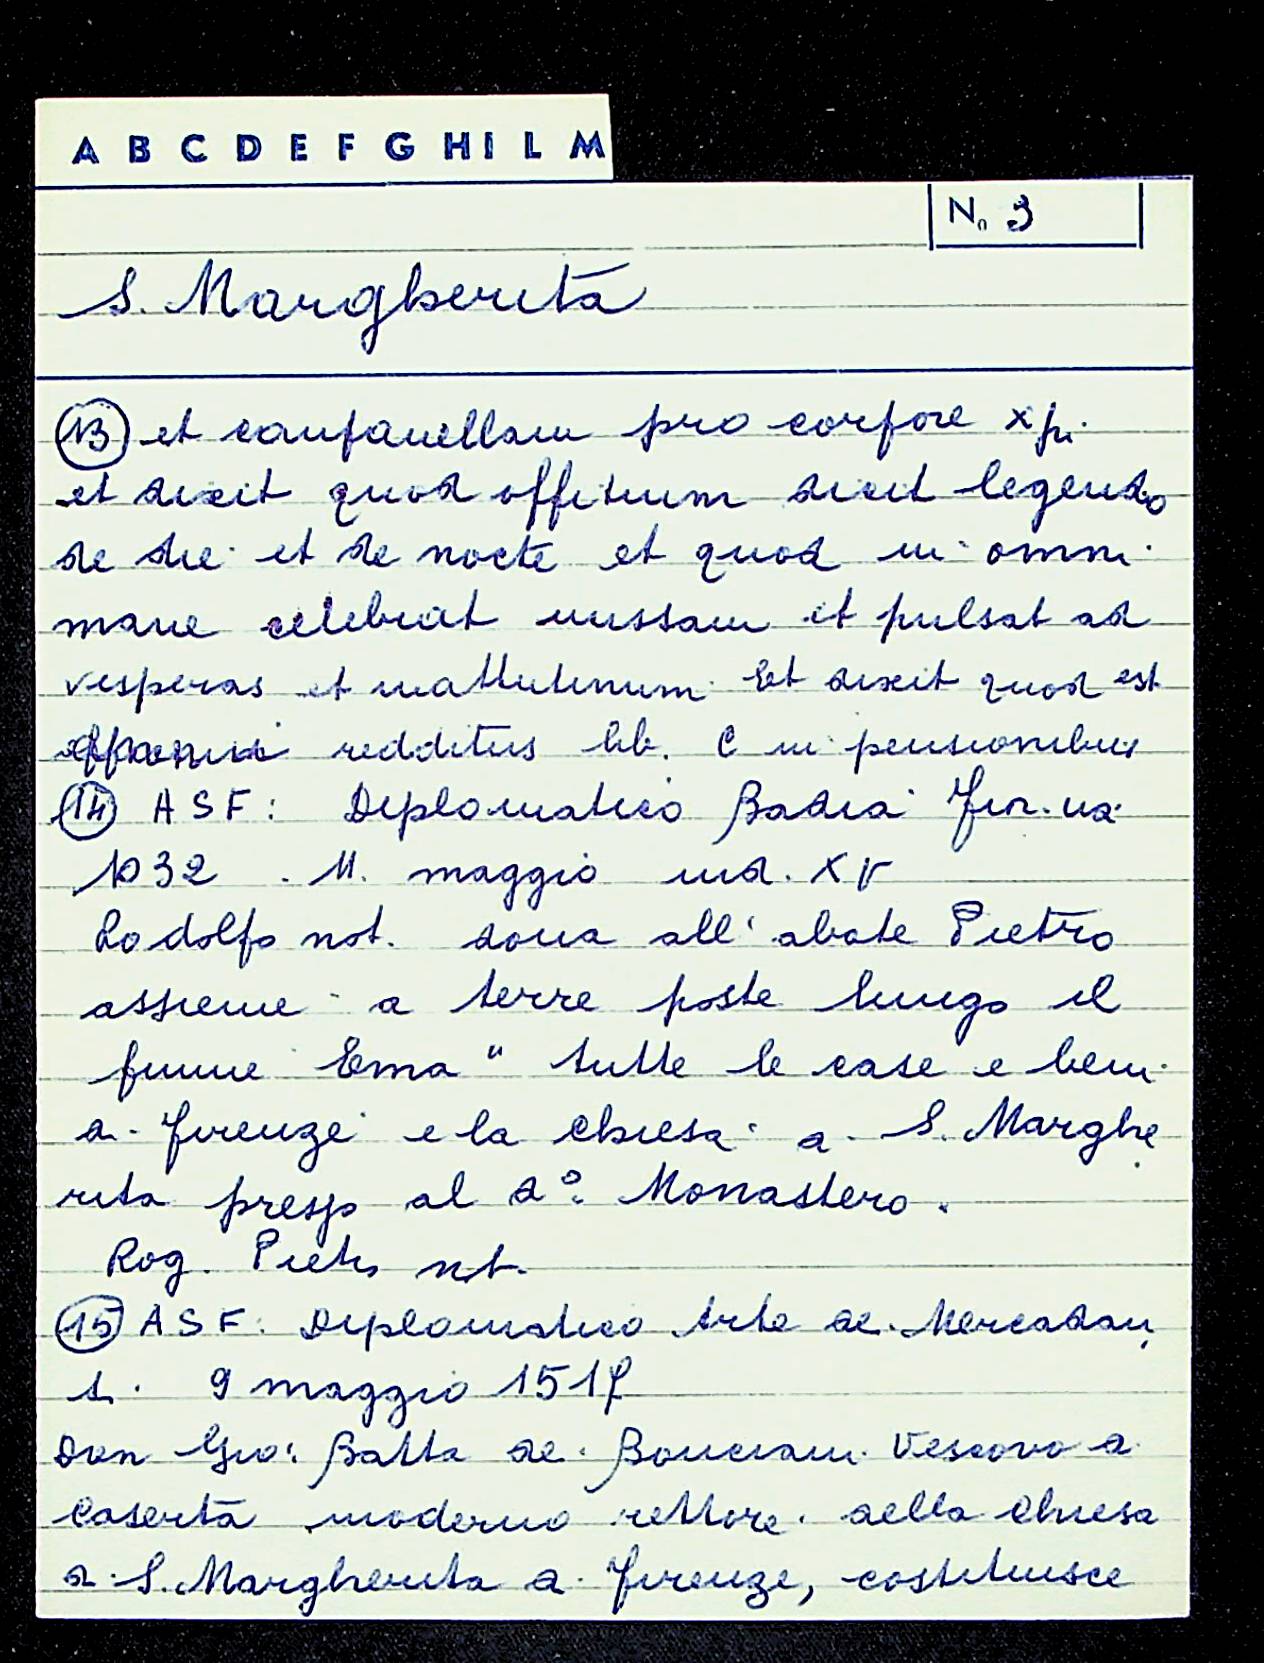 A B C D E F G H I L M
N. 3
S. Margherita
13 et canpanellam pro corpore xpi.
et dixit quod offitium dicit legendo
de die et de nocte et quod in omni
mane celebrat missam et pulsat ad
vesperas et mattutinum. Et dixit quod est
redditus lib. C in pensionibus
14 ASF: Diplomatico Badia Fior.na
1032 . 11. maggio ind. XV
Rodolfo not. dona all'abate Pietro
assieme a terre poste lungo il
fiume Ema " tutte le case e beni
di Firenze e la chiesa di S. Marghe
rita presso al d.o Monastero.
Rog. Pietro not.
15 ASF: Diplomatico Arte dei Mercadan
ti. 9 maggio 1517
Don Gio: Batta dei Bonciani Vescovo di
Caserta moderno rettore della Chiesa
di S. Margherita di Firenze, costituisce